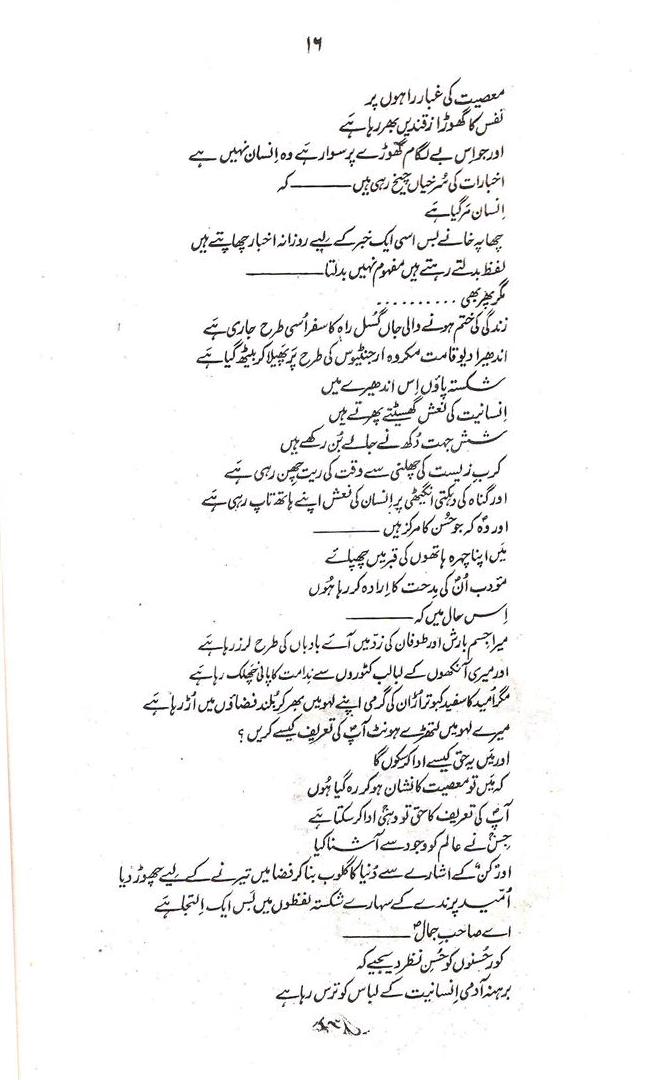 ۱۶
معصیت کی غبار راہوں پر
نفس کا گھوڑا زقندیں بھر رہا ہے
اور جو اِس بے لگام گھوڑے پر سوار ہے وہ اِنسان نہیں ہے
اخبارات کی سُرخیاں چیخ رہی ہیں ——— کہ
اِنسان مَر گیا ہے
چھاپہ خانے بس اسی ایک خبر کے لیے روزانہ اخبار چھاپتے ہیں
لفظ بدلتے رہتے ہیں مفہوم نہیں بدلتا ———
مگر پھر بھی ..........
زندگی کی ختم ہونے والی جاں گُسل راہ کا سفر اُسی طرح جاری ہے
اندھیرا دیو قامت مکروہ ارجنٹیوس کی طرح پَر پھیلا کر بیٹھ گیا ہے
شکستہ پاؤں اِس اندھیرے میں
اِنسانیت کی نعش گھسیٹتے پھرتے ہیں
شش جہت دُکھ نے جالے بُن رکھے ہیں
کربِ زیست کی چھلنی سے وقت کی ریت چھن رہی ہے
اور گناہ کی دہکتی انگیٹھی پر اِنسان کی نعش اپنے ہاتھ تاپ رہی ہے
اور وہؐ کہ جو حُسن کا مرکز ہیں ———
مَیں اپنا چہرہ ہاتھوں کی قبر میں چھپائے
مؤدب اُنؐ کی مِدحت کا اِرادہ کر رہا ہُوں
اِس حال میں کہ ———
میرا جسم بارش اور طوفان کی زَد میں آئے بادباں کی طرح لرز رہا ہے
اور میری آنکھوں کے لبالب کٹوروں سے ندامت کا پانی چھلک رہا ہے
مگر اُمید کا سفید کبوتر اُڑان کی گرمی اپنے لہو میں بھر کر بُلند فضاؤں میں اُڑ رہا ہے
میرے لہو میں لتھڑے ہونٹ آپؐ کی تعریف کیسے کریں ؟
اور مَیں یہ حق کیسے ادا کر سکوں گا
کہ مَیں تو معصیت کا نشان ہو کر رہ گیا ہُوں
آپؐ کی تعریف کا حق تو وہی ادا کر سکتا ہے
جس نے عالم کو وجود سے آشنا کیا
اور ”کُن“ کے اشارے سے دُنیا کا گلوب بنا کر فضا میں تیرنے کے لیے چھوڑ دیا
اُمّید پرندے کے سہارے شکستہ لفظوں میں بس ایک اِلتجا ہے
اے صاحبِ جمالؐ ———
کور حُسنوں کو حُسنِ نظر دیجیے کہ
برہنہ آدمی اِنسانیت کے لباس کو ترس رہا ہے